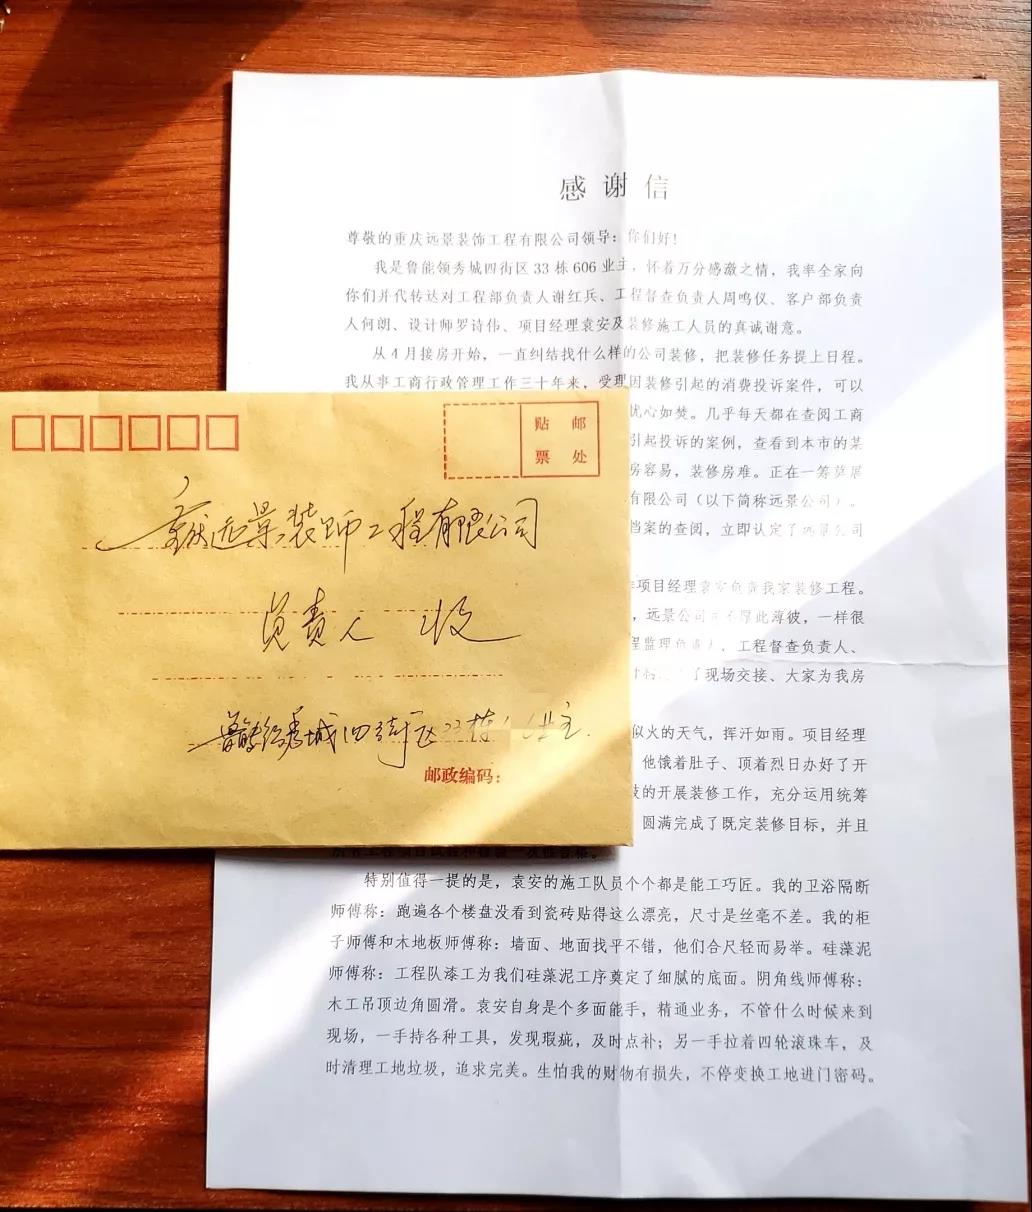 感谢信
尊敬的重庆远景装饰工程有限公司领导：你们好！
我是鲁能领秀城四街区33栋606业主，怀着万分感激之情，我率全家向
你们并代转达对工程部负责人谢红兵、工程督查负责人周鸣仪、客户部负责
人何朗、设计师罗诗伟、项目经理袁安及装修施工人员的真诚谢意。
从4月接房开始，一直纠结找什么样的公司装修，把装修任务提上日程。
我从事工商行政管理工作三十年来，受理因装修引起的消费投诉案件，可以
忧心如焚。几乎每天都在查阅工商
引起投诉的案例，查看到本市的某
房容易，装修房难。正在一筹莫展
有限公司（以下简称远景公司）。
档案的查阅，立即认定了远景公司
项目经理袁安负责我家装修工程。
，远景公司并不厚此薄彼，一样很
程监理负责人，工程督查负责人、
了现场交接、大家为我房
似火的天气，挥汗如雨。项目经理
他饿着肚子、顶着烈日办好了开
的开展装修工作，充分运用统筹
圆满完成了既定装修目标，并且
特别值得一提的是，袁安的施工队员个个都是能工巧匠。我的卫浴隔断
师傅称：跑遍各个楼盘没看到瓷砖贴得这么漂亮，尺寸是丝毫不差。我的柜
子师傅和木地板师傅称：墙面、地面找平不错，他们合尺轻而易举。硅藻泥
师傅称：工程队漆工为我们硅藻泥工序奠定了细腻的底面。阴角线师傅称：
木工吊顶边角圆滑。袁安自身是个多面能手，精通业务，不管什么时候来到
现场，一手持各种工具，发现瑕疵，及时点补；另一手拉着四轮滚珠车，及
时清理工地垃圾，追求完美。生怕我的财物有损失，不停变换工地进门密码。
贴 邮
票 处
重庆远景装饰工程有限公司
负责人 收
鲁能领秀城四街区33栋 业主.
邮政编码：